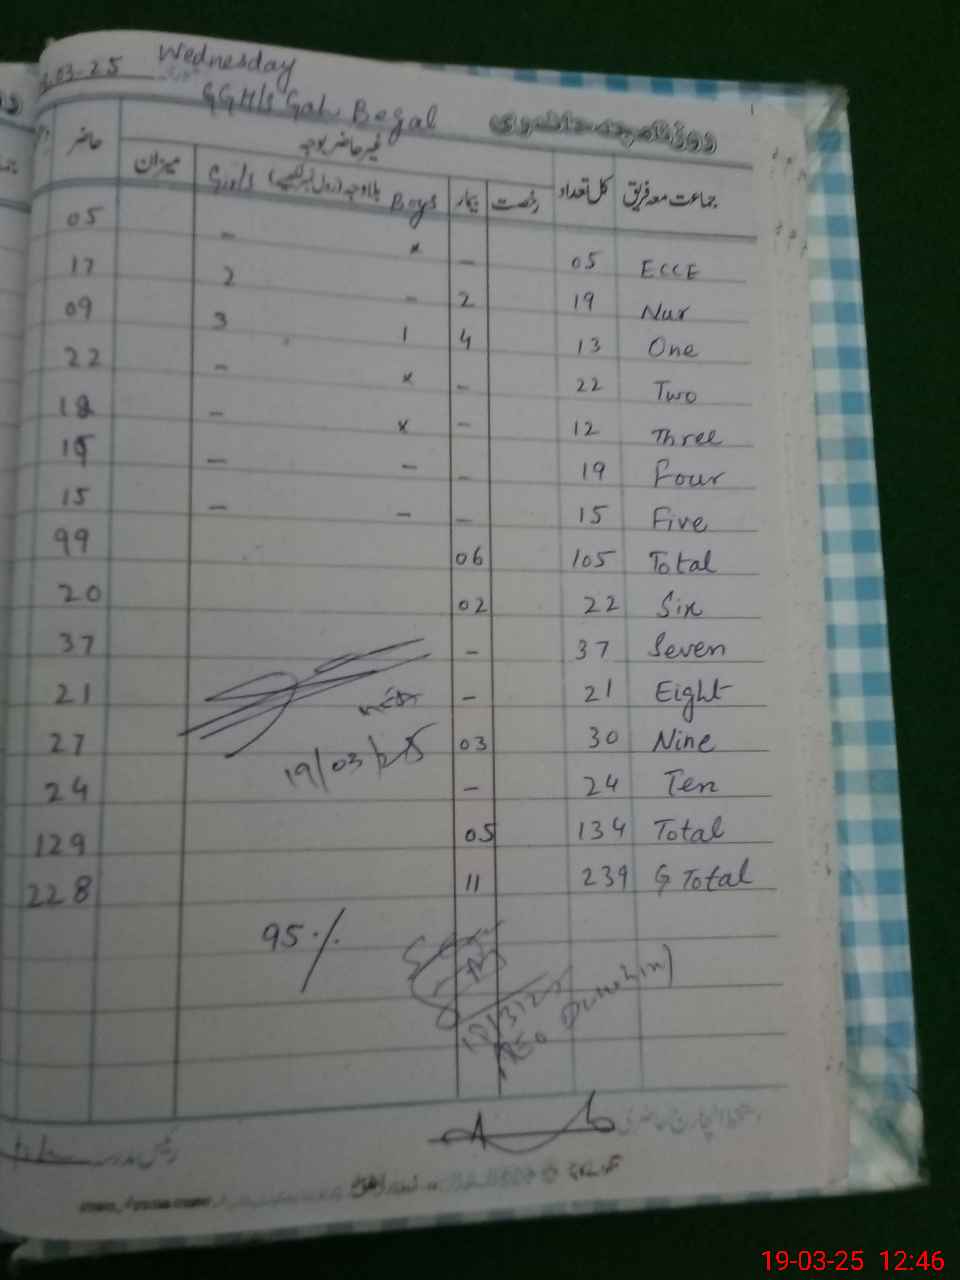 03-25 Wednesday
GGH/S Gah Begal
روزنامچہ حاضری
جماعت معہ فریق کل تعداد غیر حاضر بوجہ حاضر
رخصت بیمار Boys بلاوجہ Girls میزان
ECCE 05 - × - 05
Nur 19 2 - 2 17
One 13 4 1 3 09
Two 22 - × - 22
Three 12 - × - 12
Four 19 - - - 19
Five 15 - - - 15
Total 105 06 99
Six 22 02 20
Seven 37 - 37
Eight 21 - 21
Nine 30 03 27
Ten 24 - 24
Total 134 05 129
G Total 239 11 228
19/03/25
95 %
رئیس مدرسہ
19-03-25 12:46